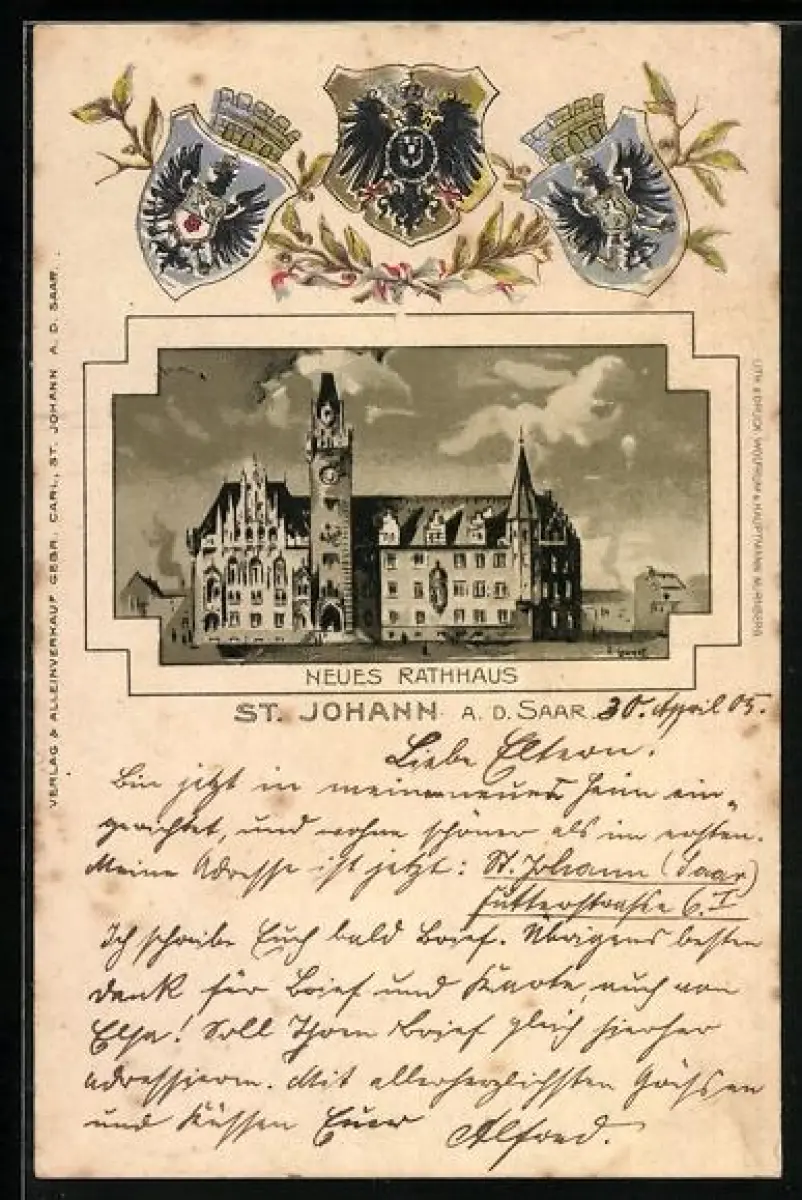 VERLAG & ALLEINVERKAUF GEBR. CARL, ST. JOHANN A. D. SAAR.
LITH & DRUCK WOLFRUM & HAUPTMANN NÜRNBERG
NEUES RATHHAUS
ST. JOHANN A. D. SAAR 30. April 05.
Liebe Eltern.
Bin jetzt in mein neues Heim ein„
gerichtet, und wohne schöner als im ersten.
Meine Adresse ist jetzt: St. Johann (Saar)
Futterstrasse 6. I
Ich schreibe Euch bald Brief. Übrigens besten
Dank für Brief und Karte, auch von
Elsa! Soll Ihren Brief gleich hierher
adressieren. Mit allerherzlichsten Grüssen
und Küssen Euer Alfred.